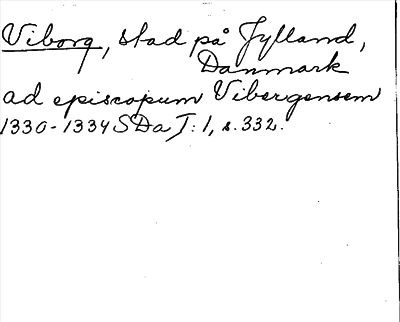 Viborg, stad på Jylland,
Danmark
ad episcopum Vibergensem
1330-1334 SDa I: 1, s. 332.